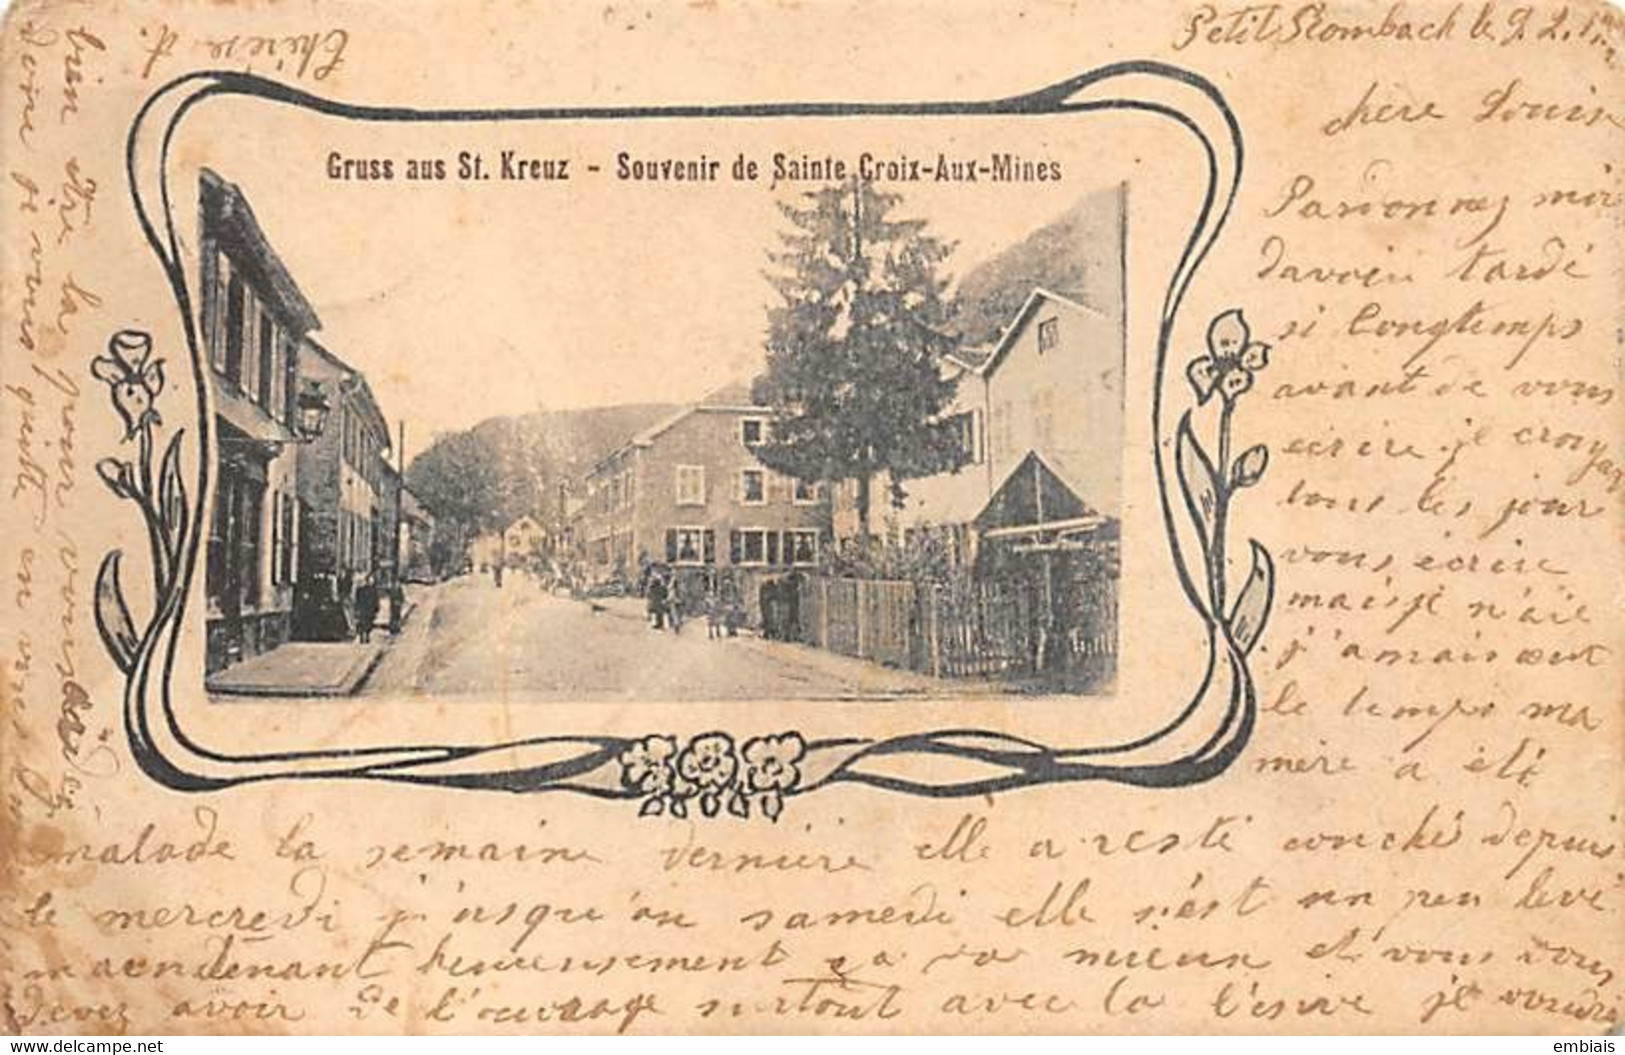 Petit Rombach le 9.2.
chère Louise
Gruss aus St. Kreuz - Souvenir de Sainte Croix-Aux-Mines
Pardonnez moi
davoir tardé
si longtemps
avant de vous
ecrire. je croyai
tous les jour
vous écrire
mais je n'aïe
j'amais
le temps ma
mère a été
malade la semaine dernière elle a resté couché depuis
le mercredi j'usqu'au samedi elle s'est un peu levé
maendenant heureusement ça va mieux et vous vous
devez avoir de l'ouvrage surtout avec la l'esive je voudrai
bien être la pour vous
donc je vous quitte en vous
Thérèse d.
delcampe.net
embiais